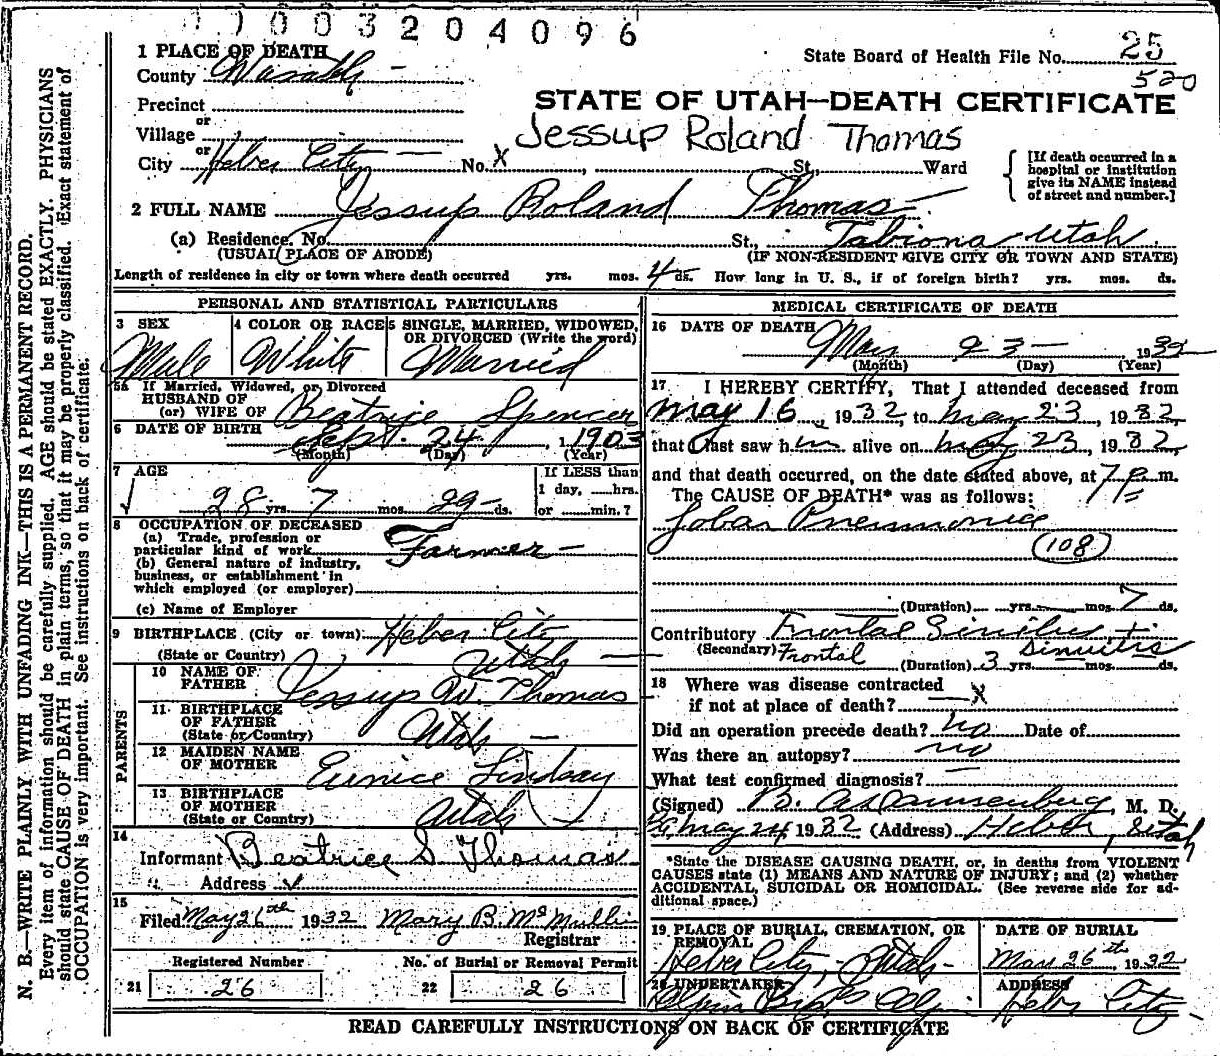 1003204096
1 PLACE OF DEATH
County Wasatch
State Board of Health File No. 25
520
Precinct
or
Village
or
City Heber City No. X St., Ward
STATE OF UTAH—DEATH CERTIFICATE
Jessup Roland Thomas
[If death occurred in a hospital or institution give its NAME instead of street and number.]
2 FULL NAME Jessup Roland Thomas
(a) Residence. No. St., Tabiona Utah
(USUAL PLACE OF ABODE) (IF NON-RESIDENT GIVE CITY OR TOWN AND STATE)
Length of residence in city or town where death occurred yrs. mos. 4 ds. How long in U. S., if of foreign birth? yrs. mos. ds.
PERSONAL AND STATISTICAL PARTICULARS
3 SEX Male
4 COLOR OR RACE White
5 SINGLE, MARRIED, WIDOWED, OR DIVORCED (Write the word) Married
5A If Married, Widowed, or Divorced
HUSBAND OF
(or) WIFE OF Beatrice Spencer
6 DATE OF BIRTH Sept. 24, 1903
(Month) (Day) (Year)
7 AGE
28 yrs. 7 mos. 29 ds.
If LESS than
1 day, hrs.
or min.?
8 OCCUPATION OF DECEASED
(a) Trade, profession or
particular kind of work Farmer
(b) General nature of industry,
business, or establishment in
which employed (or employer)
(c) Name of Employer
9 BIRTHPLACE (City or town) Heber City
(State or Country) Utah
PARENTS
10 NAME OF
FATHER Jessup W. Thomas
11 BIRTHPLACE
OF FATHER
(State or Country) Utah
12 MAIDEN NAME
OF MOTHER Eunice Lindsay
13 BIRTHPLACE
OF MOTHER
(State or Country) Utah
14
Informant Beatrice S Thomas
Address
15
Filed May 26th 1932 Mary B. McMullin
Registrar
Registered Number
21 26
No. of Burial or Removal Permit
22 26
MEDICAL CERTIFICATE OF DEATH
16 DATE OF DEATH May 23 1932
(Month) (Day) (Year)
17 I HEREBY CERTIFY, That I attended deceased from
May 16, 1932 to May 23, 1932,
that I last saw him alive on May 23, 1932,
and that death occurred, on the date stated above, at 7 p.m.
The CAUSE OF DEATH* was as follows:
Lobar Pneumonia
108
(Duration) yrs. mos. 7 ds.
Contributory Frontal Sinuitus +
(Secondary) Frontal Sinuitis
(Duration) 3 yrs. mos. ds.
18 Where was disease contracted
if not at place of death? X
Did an operation precede death? no Date of
Was there an autopsy? no
What test confirmed diagnosis?
(Signed) M. D.
May 24 1932 (Address) Heber, Utah
*State the DISEASE CAUSING DEATH, or, in deaths from VIOLENT
CAUSES state (1) MEANS AND NATURE OF INJURY; and (2) whether
ACCIDENTAL, SUICIDAL OR HOMICIDAL. (See reverse side for ad-
ditional space.)
19 PLACE OF BURIAL, CREMATION, OR
REMOVAL
Heber City, Utah
DATE OF BURIAL
May 26th, 1932
20 UNDERTAKER
ADDRESS
Heber City
READ CAREFULLY INSTRUCTIONS ON BACK OF CERTIFICATE
N. B.—WRITE PLAINLY WITH UNFADING INK—THIS IS A PERMANENT RECORD.
Every item of information should be carefully supplied. AGE should be stated EXACTLY. PHYSICIANS
should state CAUSE OF DEATH in plain terms, so that it may be properly classified. Exact statement of
OCCUPATION is very important. See instructions on back of certificate.